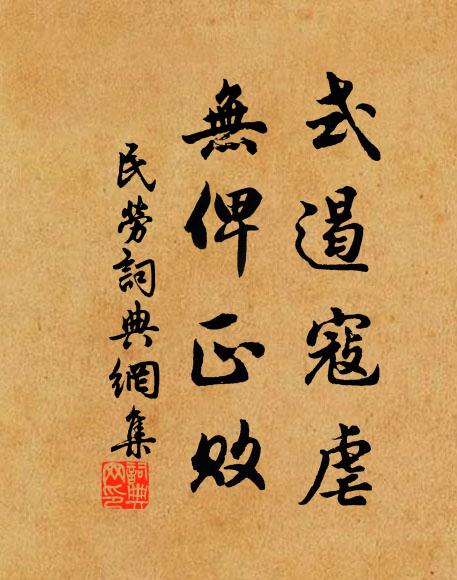 式遏寇虐
無俾正敗
民勞詞典網集
詞典網印